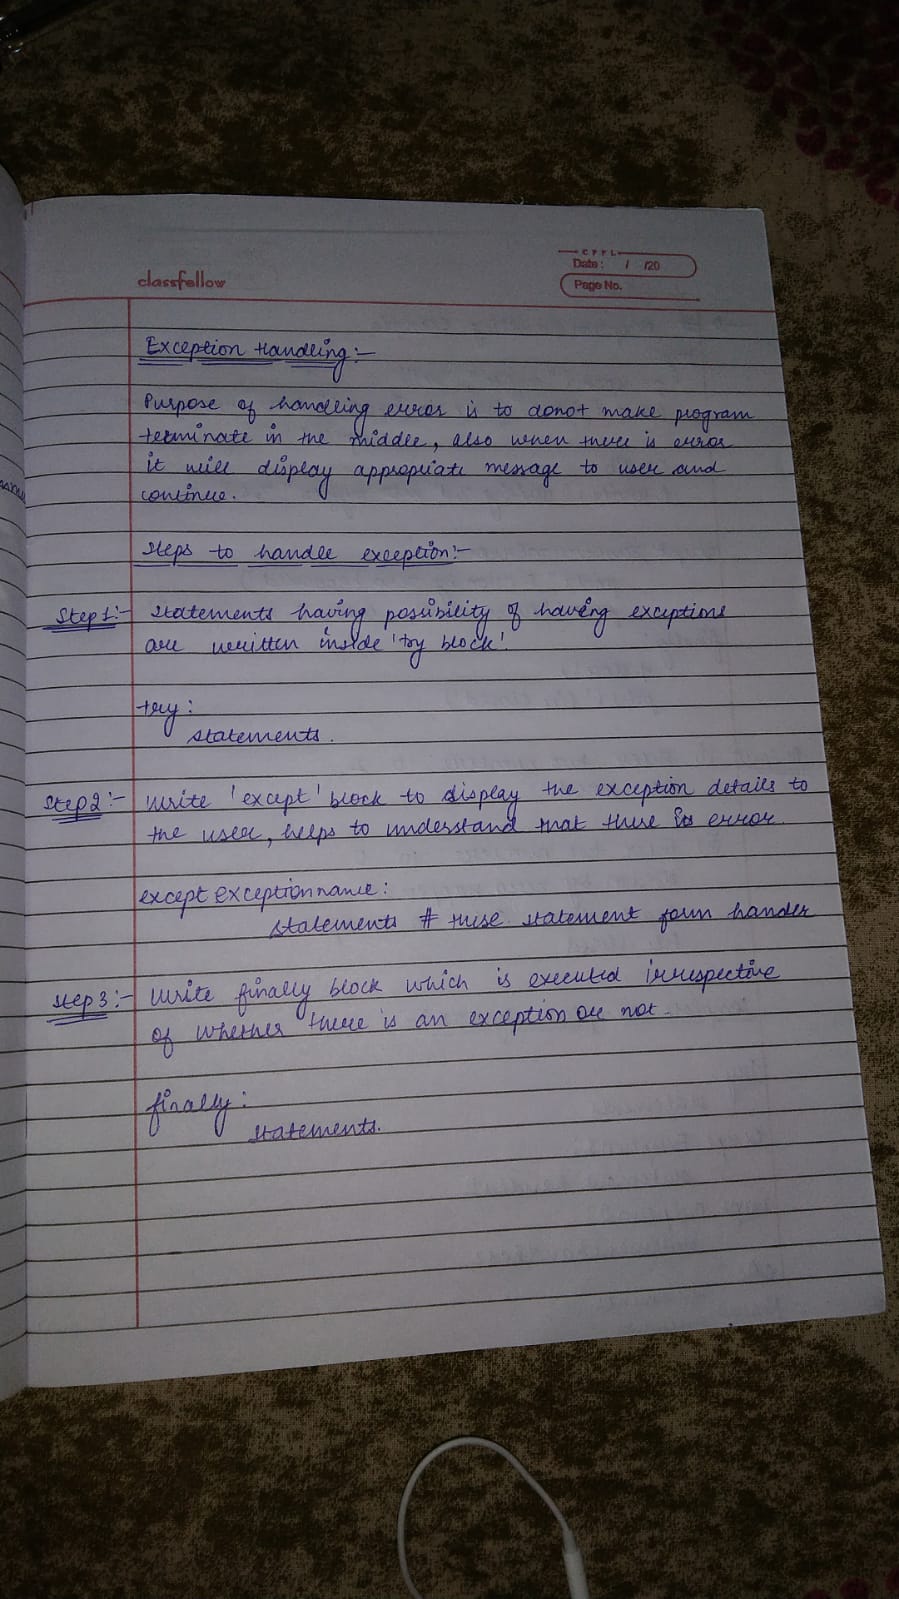 classfellow
CPFL
Date: / /20
Page No.
Exception Handling:-
Purpose of handling error is to donot make program
terminate in the middle, also when there is error
it will display appropriate message to user and
continue.
Steps to handle exception:-
Step1:- statements having possibility of having exceptions
are written inside 'try block'.
try:
statements.
Step2:- write 'except' block to display the exception details to
the user, helps to understand that there is error.
except exceptionname:
statements # these statement form hander
Step3:- write finally block which is executed irrespective
of whether there is an exception or not.
finally:
statements.